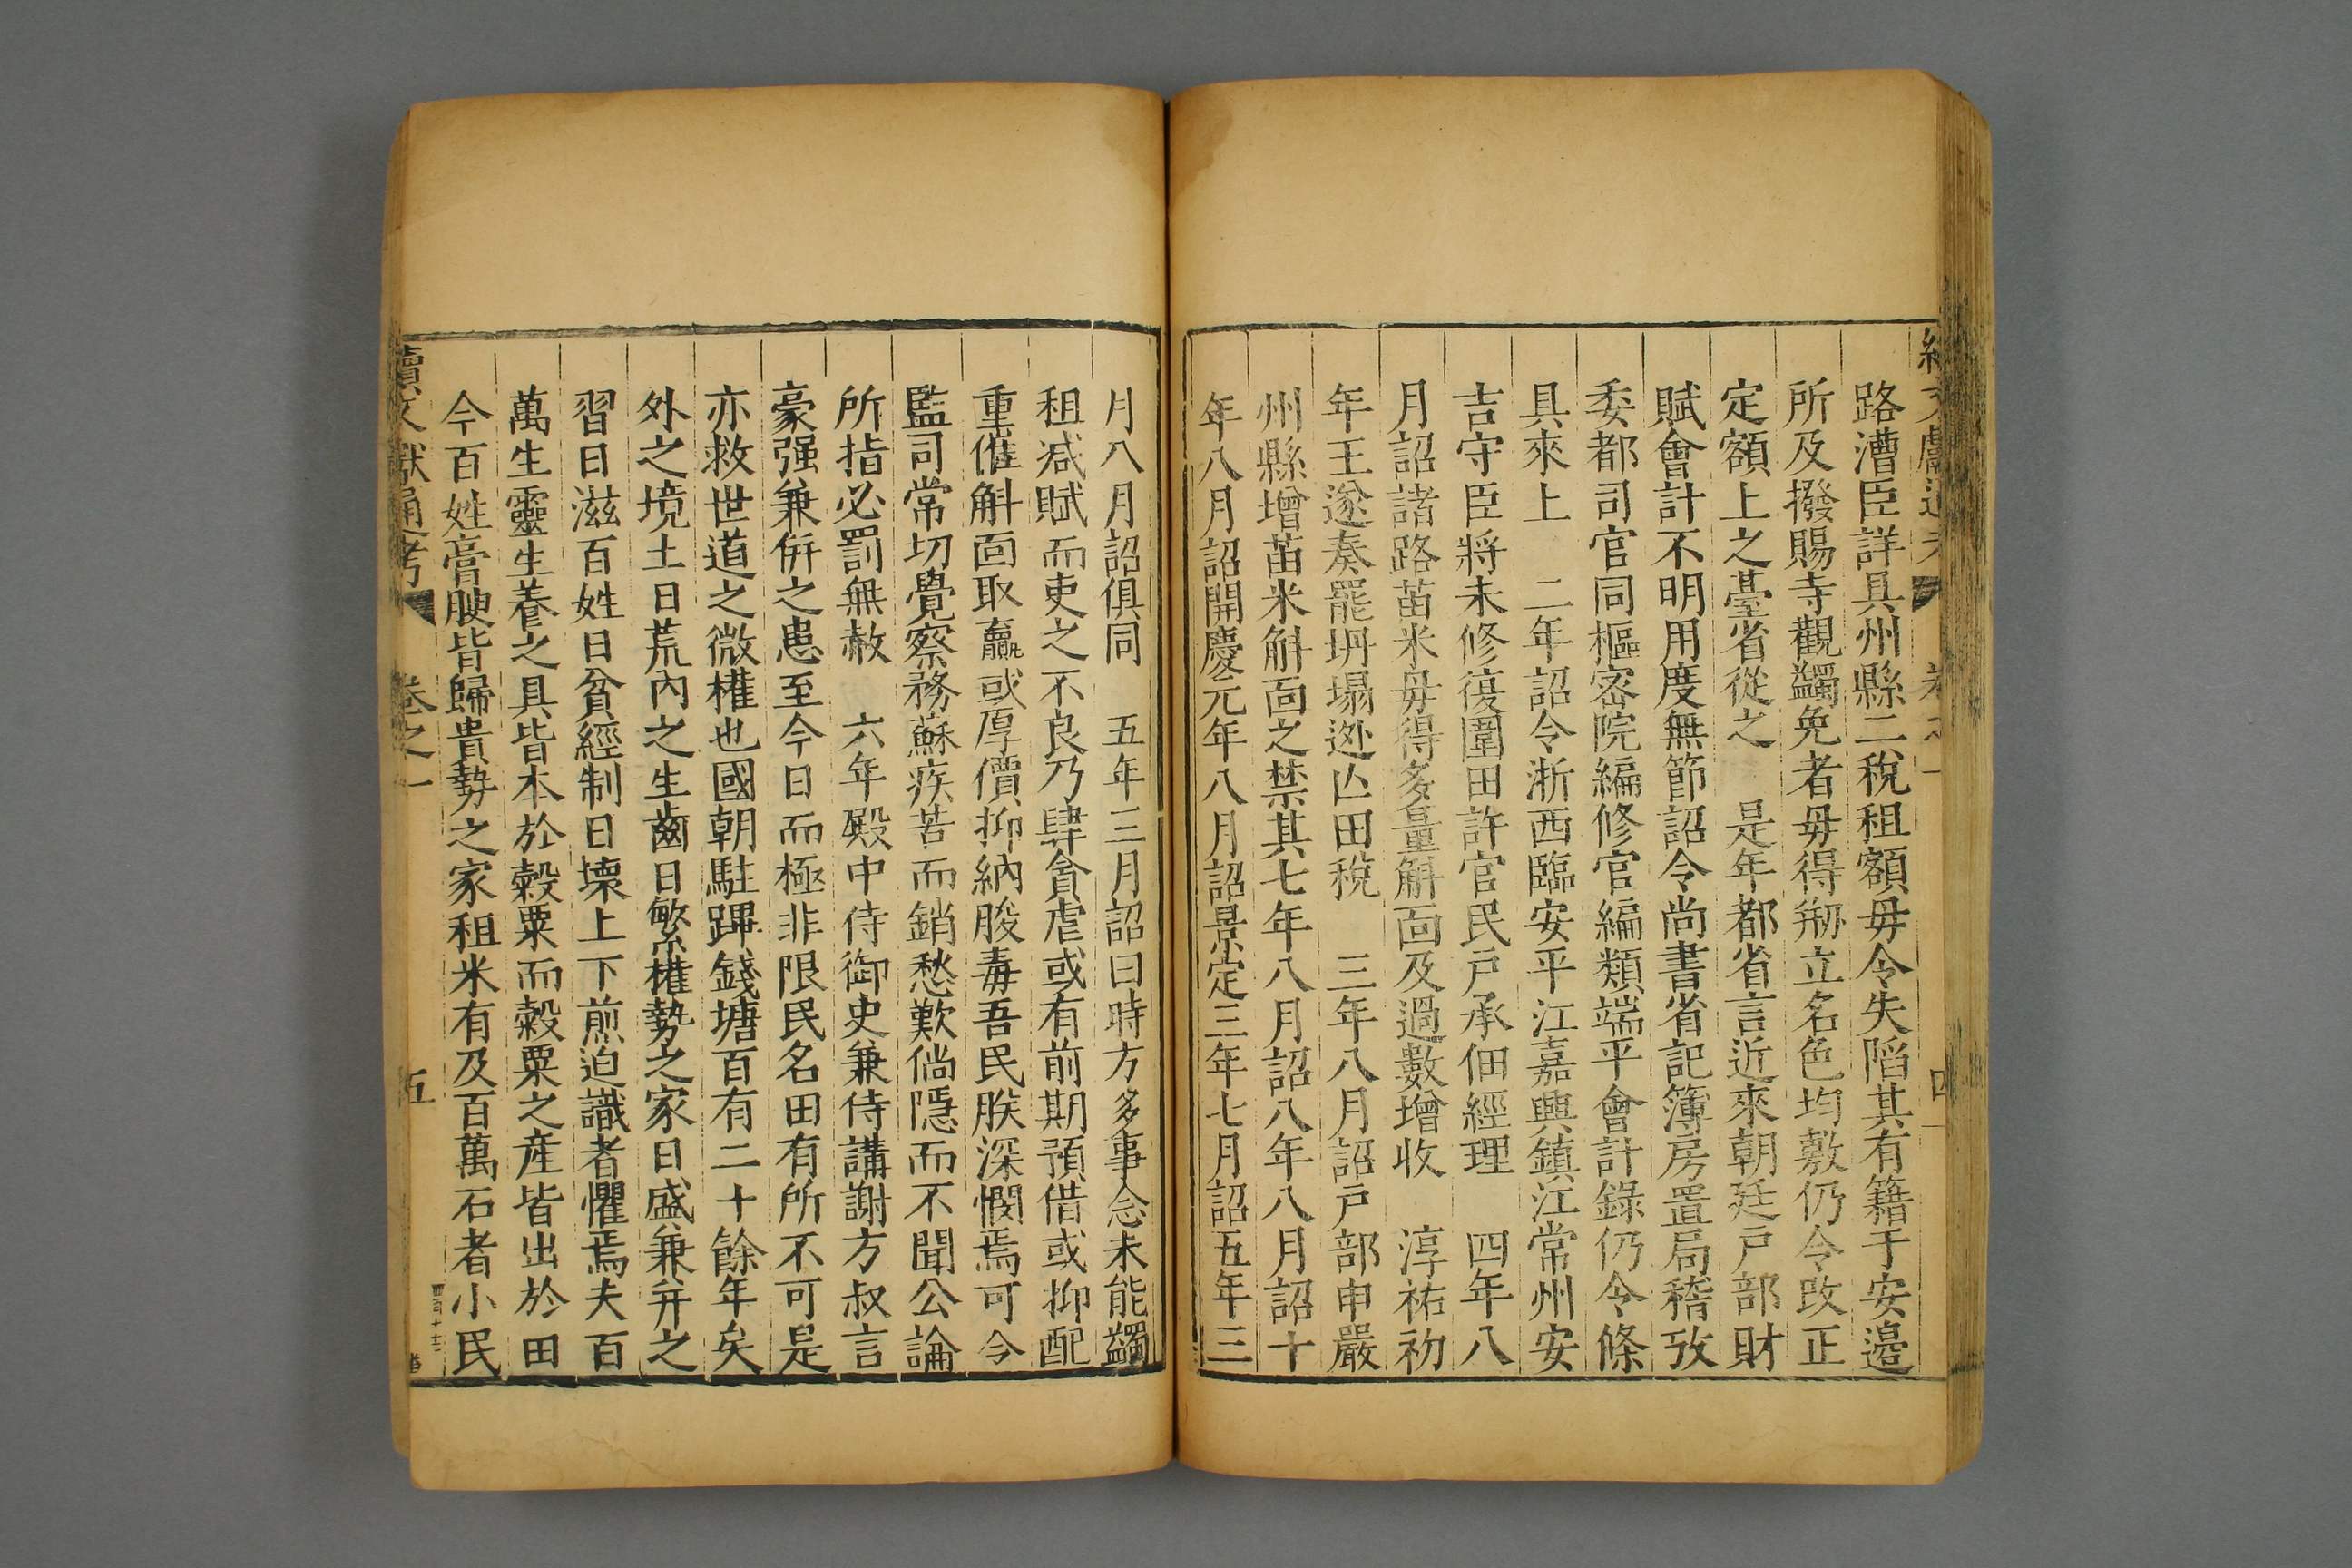 路漕臣詳具州縣二稅租額毋令失陷其有籍于安邊
所及撥賜寺觀蠲免者毋得剏立名色均敷仍令改正
定額上之臺省從之　是年都省言近來朝廷戶部財
賦會計不明用度無節詔令尚書省記簿房置局稽攷
委都司官同樞密院編修官編類端平會計錄仍令條
具來上　二年詔令浙西臨安平江嘉興鎮江常州安
吉守臣將未修復圍田許官民戶承佃經理　四年八
月詔諸路苗米毋得多量斛面及過數增收　淳祐初
年王遂奏罷坍塌迯亡田稅　三年八月詔戶部申嚴
州縣增苗米斛面之禁其七年八月詔八年八月詔十
年八月詔開慶元年八月詔景定三年七月詔五年三
月八月詔俱同　五年三月詔曰時方多事念未能蠲
租减賦而吏之不良乃肆貪虐或有前期預借或抑配
重催斛面取贏或厚價抑納朘毒吾民朕深憫焉可令
監司常切覺察務蘇疾苦而銷愁歎倘隱而不聞公論
所指必罰無赦　六年殿中侍御史兼侍講謝方叔言
豪强兼併之患至今日而極非限民名田有所不可是
亦救世道之微權也國朝駐蹕錢塘百有二十餘年矣
外之境土日荒内之生齒日繁權勢之家日盛兼并之
習日滋百姓日貧經制日壞上下煎迫識者懼焉夫百
萬生靈生養之具皆本於穀粟而穀粟之產皆出於田
今百姓膏腴皆歸貴勢之家租米有及百萬石者小民
續文獻通考　卷之一　五